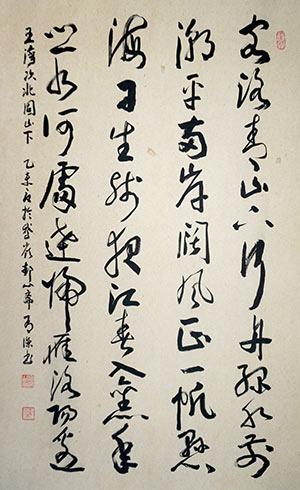 客路青山下行舟綠水前
潮平兩岸闊風正一帆懸
海日生殘夜江春入舊年
鄉書何處達歸雁洛陽邊
王灣次北固山下 乙未 於 書